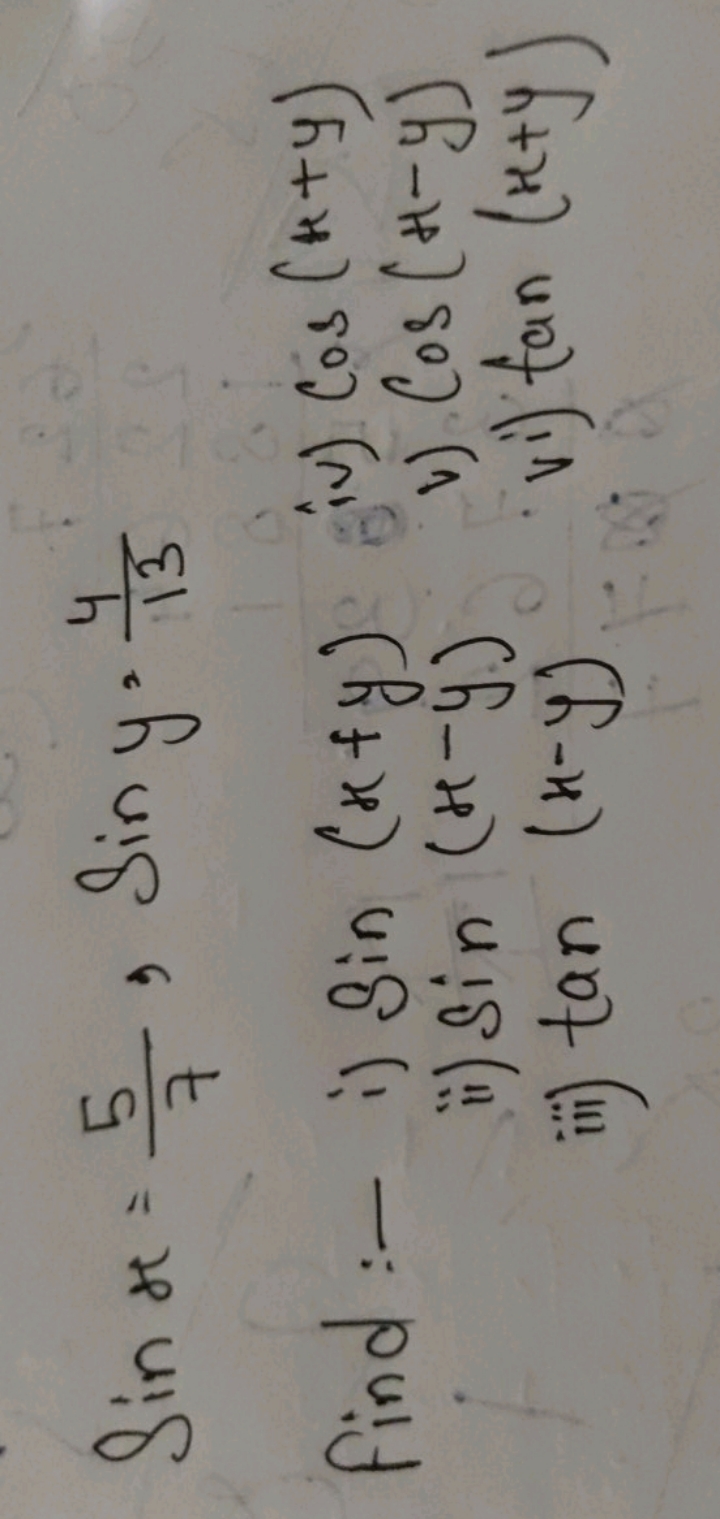 Sin x = 5/7 , Sin y = 4/13
Find :- i) Sin (x+y) iv) Cos (x+y)
ii) Sin (x-y) v) Cos (x-y)
iii) tan (x-y) vi) tan (x+y)